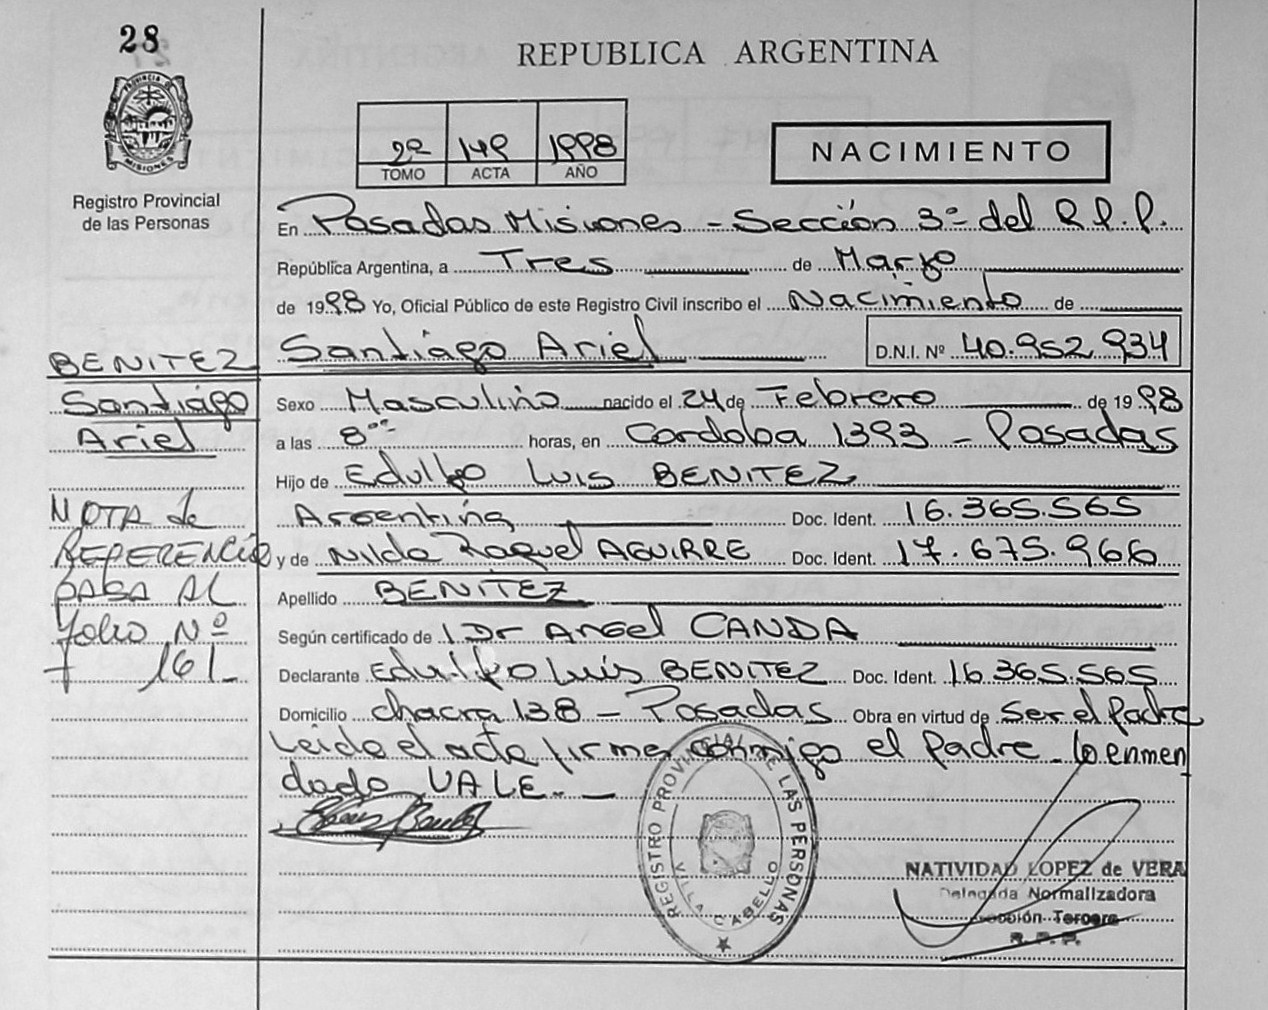 28
REPUBLICA ARGENTINA
PROVINCIA DE MISIONES
Registro Provincial
de las Personas
2º 149 1998
TOMO ACTA AÑO
NACIMIENTO
En Posadas Misiones - Sección 3ª del R.P.P.
República Argentina, a Tres de Marzo
de 1998 Yo, Oficial Público de este Registro Civil inscribo el Nacimiento de
Santiago Ariel D.N.I. Nº 40.952.934
BENITEZ
Santiago
Ariel
Sexo Masculino nacido el 24 de Febrero de 1998
a las 8ºº horas, en Cordoba 1393 - Posadas
Hijo de Edulfo Luis BENITEZ
Argentina Doc. Ident. 16.365.565
y de Nilda Raquel AGUIRRE Doc. Ident. 17.675.966
Apellido BENITEZ
Según certificado de Dr Angel CANDA
Declarante Edulfo Luis BENITEZ Doc. Ident. 16.365.565
Domicilio chacra 138 - Posadas Obra en virtud de Ser el Padre
Leida el acta firma conmigo el Padre - lo enmen
dado VALE. -
NOTA de
REFERENCIA
PASA AL
folio Nº
161
REGISTRO PROVINCIAL DE LAS PERSONAS
VILLA CABELLO
NATIVIDAD LOPEZ de VERA
Delegada Normalizadora
Sección Tercera
R. P. P.